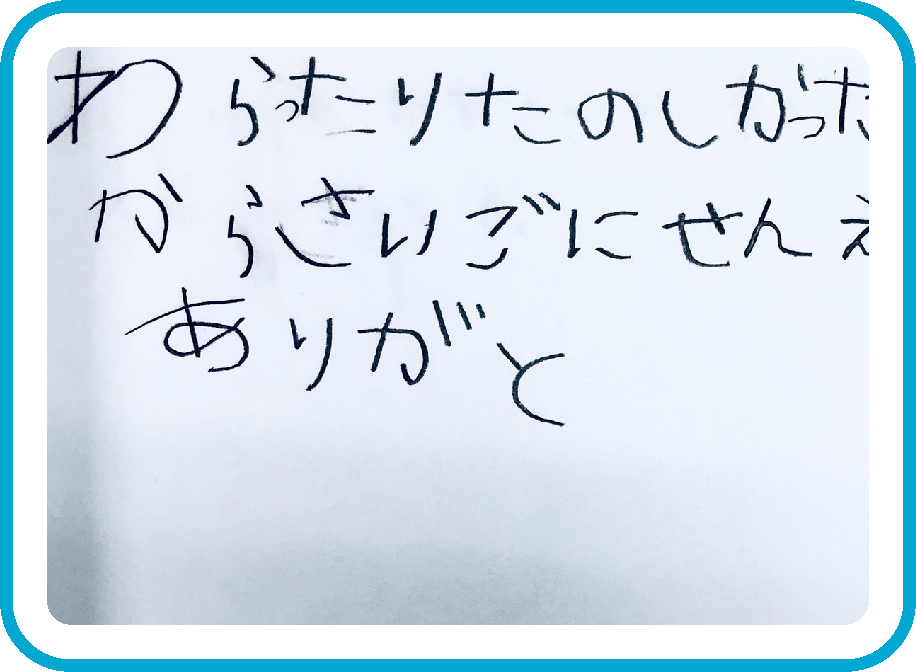 わらったりたのしかった
からさいごにせんえ
ありがと